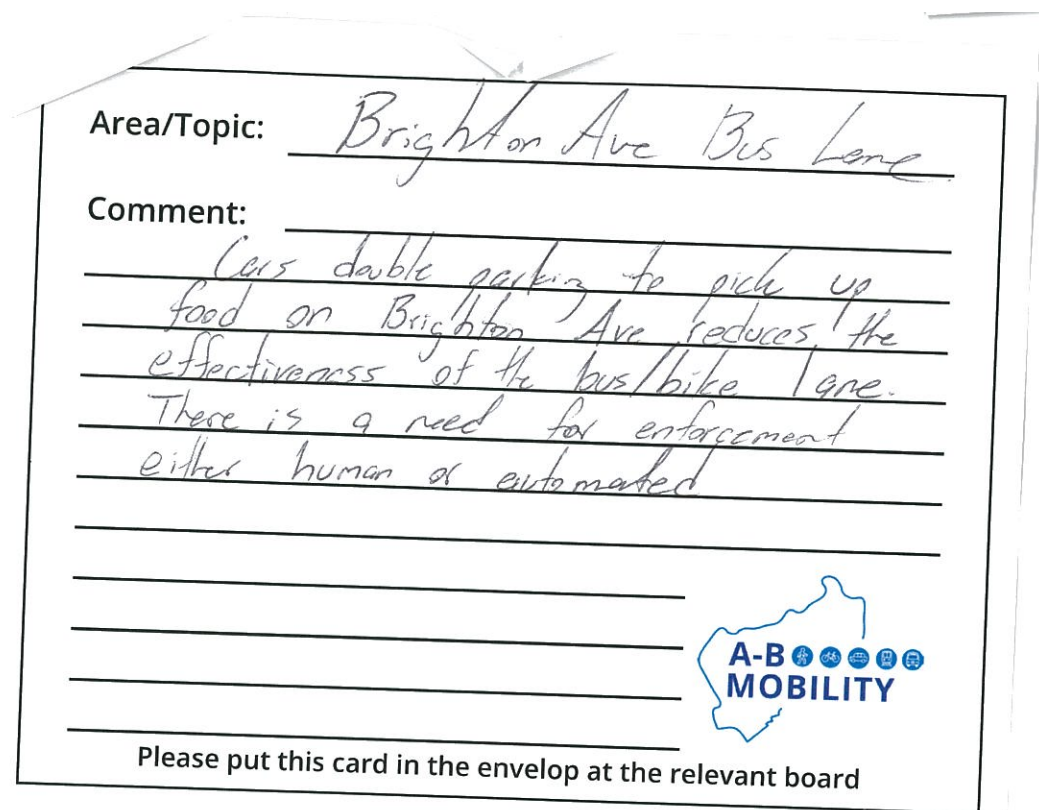 Area/Topic: Brighton Ave Bus Lane
Comment:
Cars double parking to pick up
food on Brighton Ave reduces the
effectiveness of the bus/bike lane.
There is a need for enforcement
either human or automated
A-B
MOBILITY
Please put this card in the envelop at the relevant board